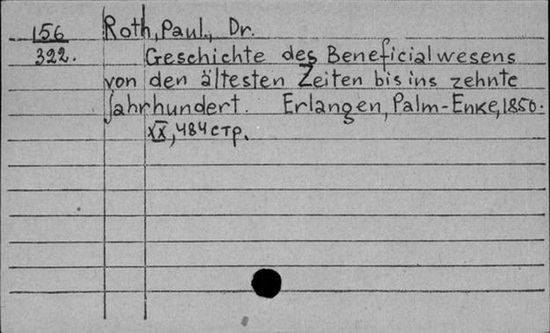 156 Roth, Paul, Dr.
322. Geschichte des Beneficialwesens
von den ältesten Zeiten bis ins zehnte
Jahrhundert. Erlangen, Palm-Enke, 1850.
XX, 484 стр.